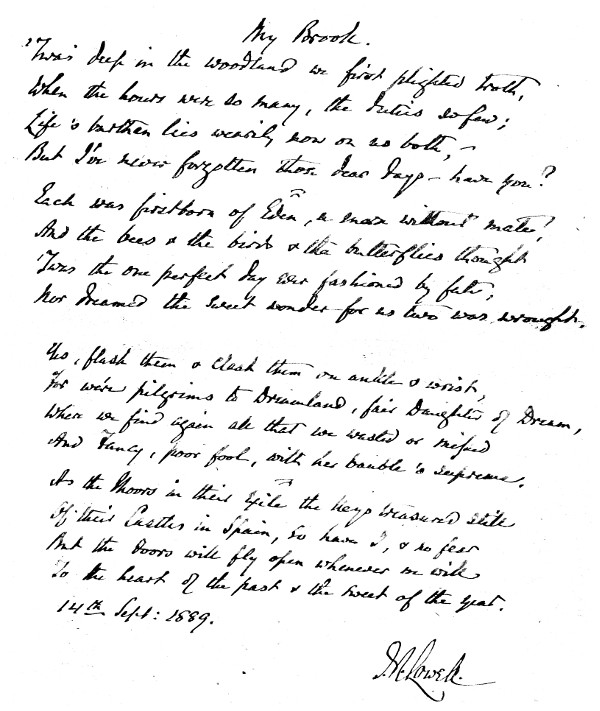 My Brook.
'Twas deep in the woodland we first plighted troth,
When the hours were so many, the duties so few;
Life's burthen lies wearily now on us both,—
But I've never forgotten those dear days — have you?
Each was firstborn of Eden, a morn without mate,
And the bees & the birds & the butterflies thought
'Twas the one perfect day ever fashioned by fate,
Nor dreamed the sweet wonder for us two was wrought.
Yes, flash them & clash them on ankle & wrist,
For we're pilgrims to Dreamland, fair Daughter of Dream,
Where we find again all that we wasted or missed
And Fancy, poor fool, with her bauble's supreme.
As the Moors in their exile the keys treasured still
Of their Castles in Spain, so have I, & no fear
But the doors will fly open whenever we will
To the heart of the past & the sweet of the year.
14th Sept: 1889.
J. R. Lowell.